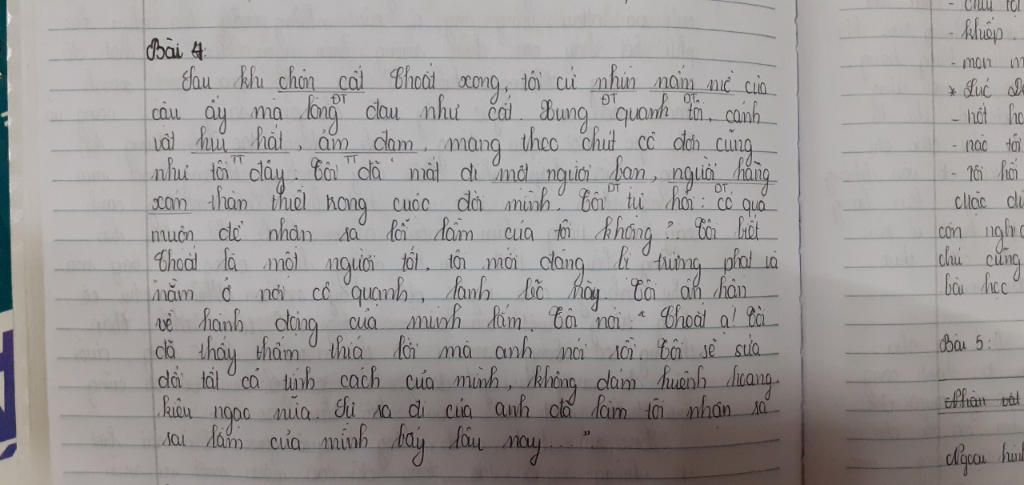 Bài 4:
Sau khi chôn cất Choắt xong, tôi cứ nhìn nấm mề của
cậu ấy mà lòng đau như cắt. Xung quanh tôi, cảnh
ĐT ĐT ĐT
vật hiu hắt, ảm đạm, mang theo chút cô đơn cũng
như tôi đây. Tôi đã mất đi một người bạn, người hàng
TT TT
xóm thân thuộc trong cuộc đời mình. Tôi tự hỏi: có quá
ĐT ĐT
muộn để nhận ra lỗi lầm của tôi không? Tôi biết
Choắt là một người tốt, tôi mới đáng bị trừng phạt và
nằm ở nơi cô quạnh, lạnh lẽo này. Tôi ân hận
về hành động của mình lắm. Tôi nói: "Choắt ạ! Tôi
đã thấy thấm thía lời mà anh nói rồi. Tôi sẽ sửa
đổi tất cả tính cách của mình, không dám huênh hoang
kiêu ngạo nữa. Sự ra đi của anh đã làm tôi nhận ra
sai lầm của mình bấy lâu nay..."
- khiếp
- nào tôi
- rồi hỏi
chú cũng
bài học
Bài 5:
Nhân vật
Ngoại hình